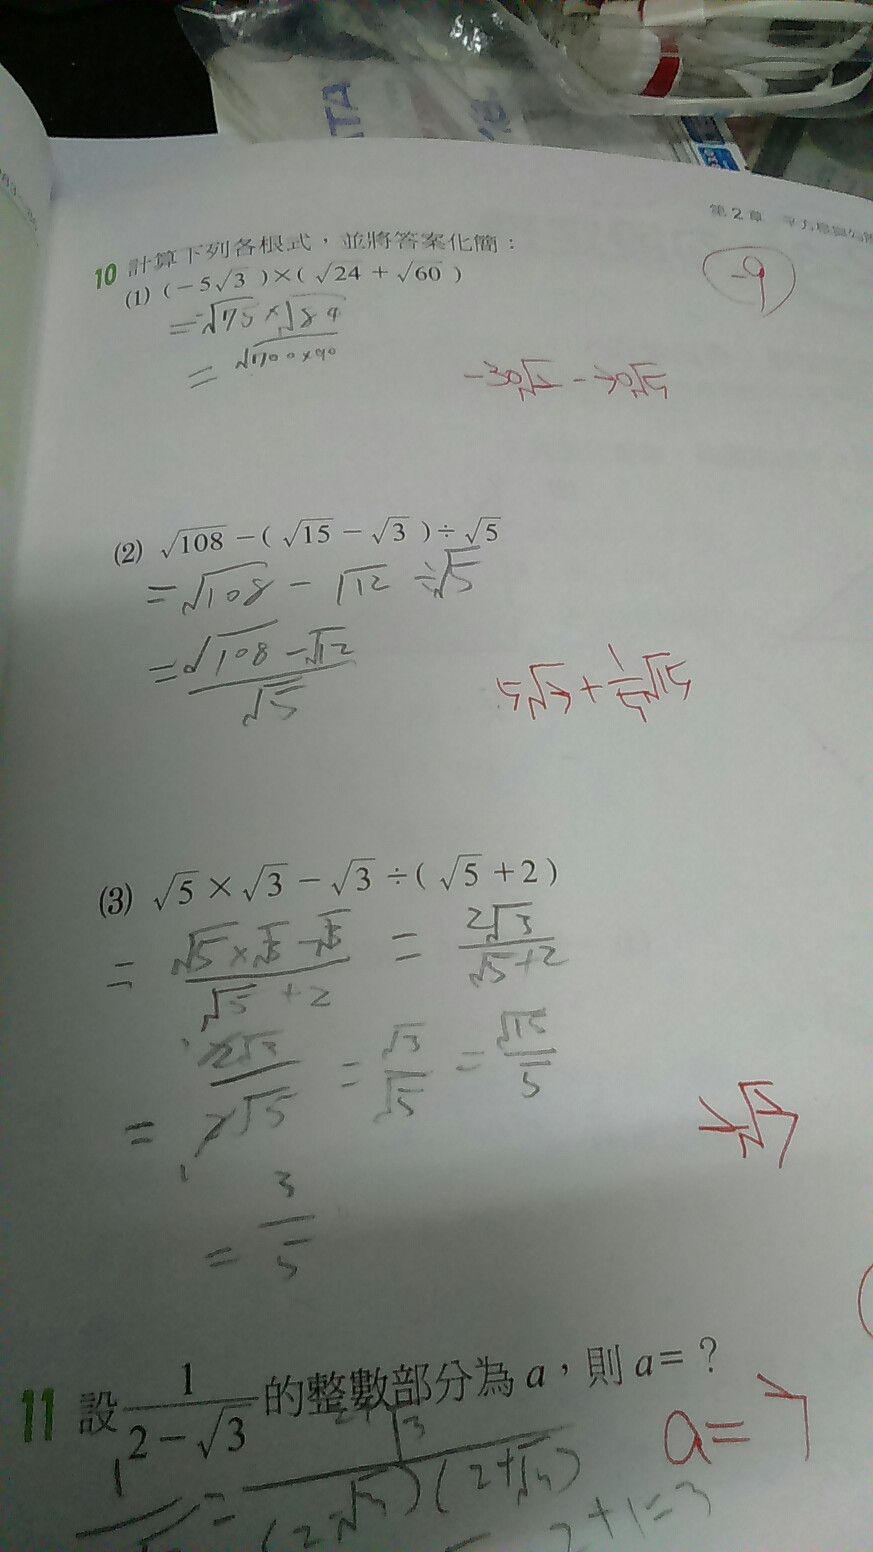 第2章
10 計算下列各根式，並將答案化簡：
(1) (－5√3 )×( √24 + √60 )
-9
= -√75 × √84
=
-30√2
(2) √108 －( √15 － √3 )÷ √5
= √108 - √12 ÷ √5
= (√108 - √12)/√5
5√3 + 1/5 √15
(3) √5 × √3 － √3 ÷( √5 +2 )
= (√5 × √3 - √3)/(√5 + 2) = 2√3/(√5 + 2)
= 2√3/2√5 = √3/√5 = √15/5
2√3
= 3/5
11 設 1/(2－√3) 的整數部分為 a，則 a=？
a=
(2-√3)(2+√3)
2+1=3